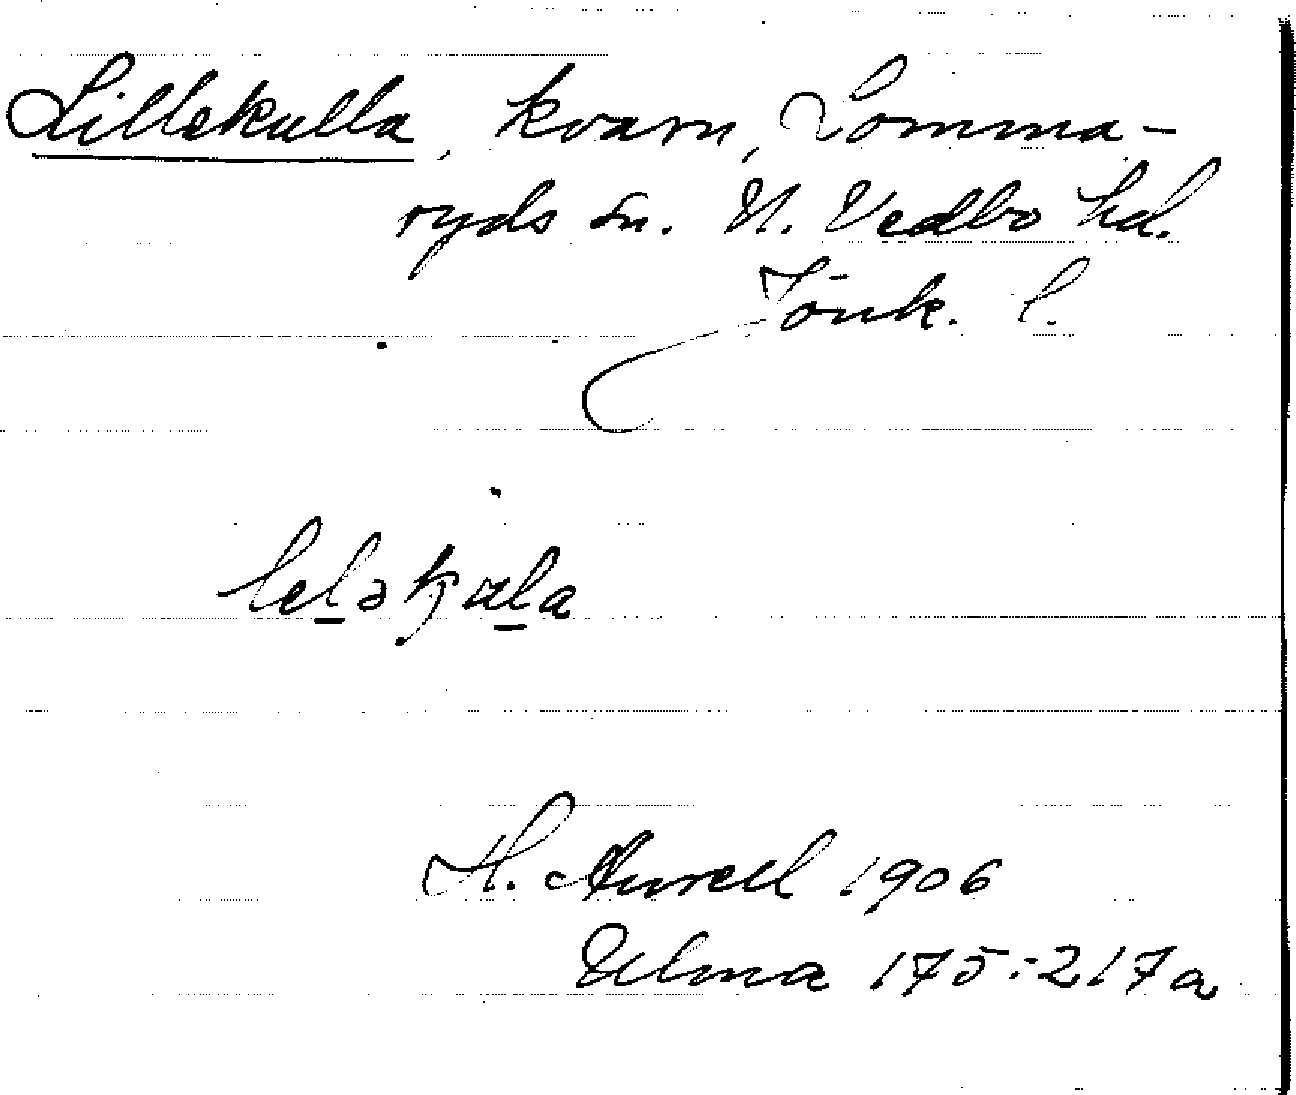 Lillekulla, kvarn, Lomma-
ryds sn. N. Vedbo hd.
Jönk. l.
leləkula
H. Aurell 1906
Ulma 175:217a